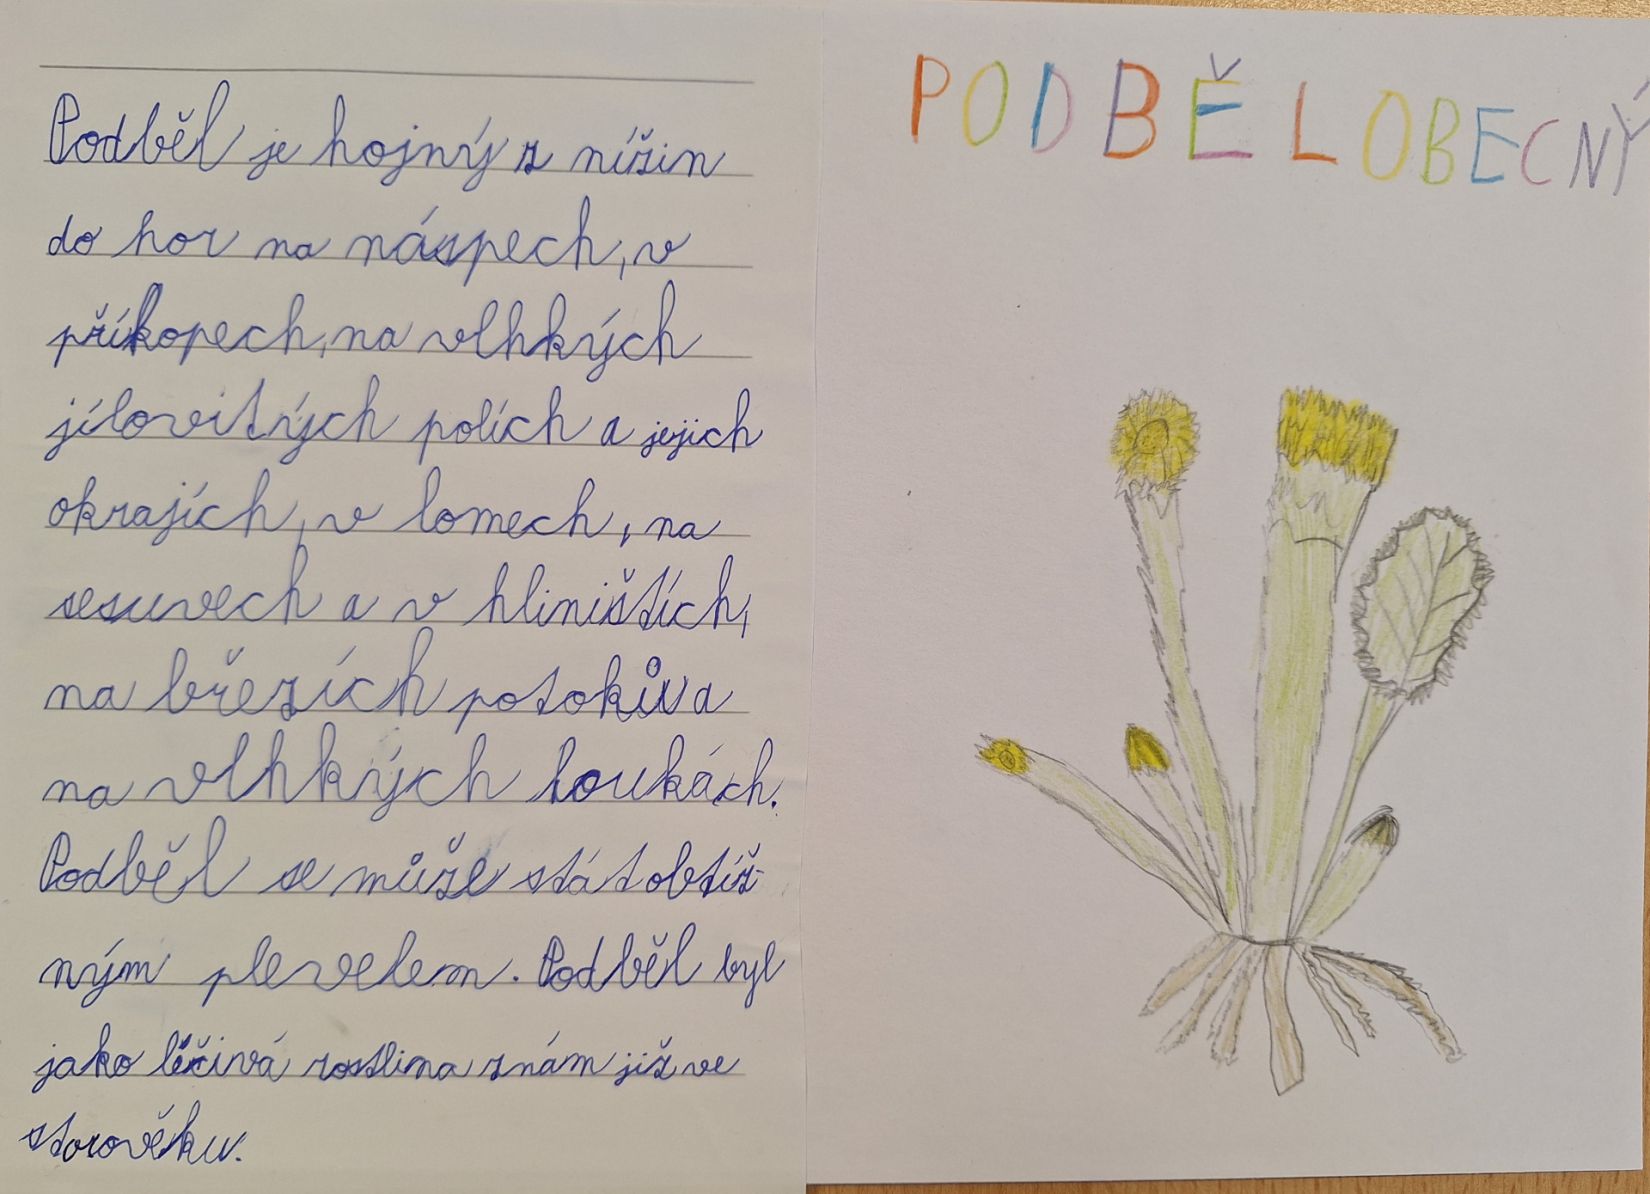 Podběl je hojný z nížin
do hor na náspech, v
příkopech, na vlhkých
jílovitých polích a jejich
okrajích, v lomech, na
sesuvech a v hliništích,
na březích potoků a
na vlhkých loukách.
Podběl se může stát obtíž-
ným plevelem. Podběl byl
jako léčivá rostlina znám již ve
starověku.
PODBĚL OBECNÝ